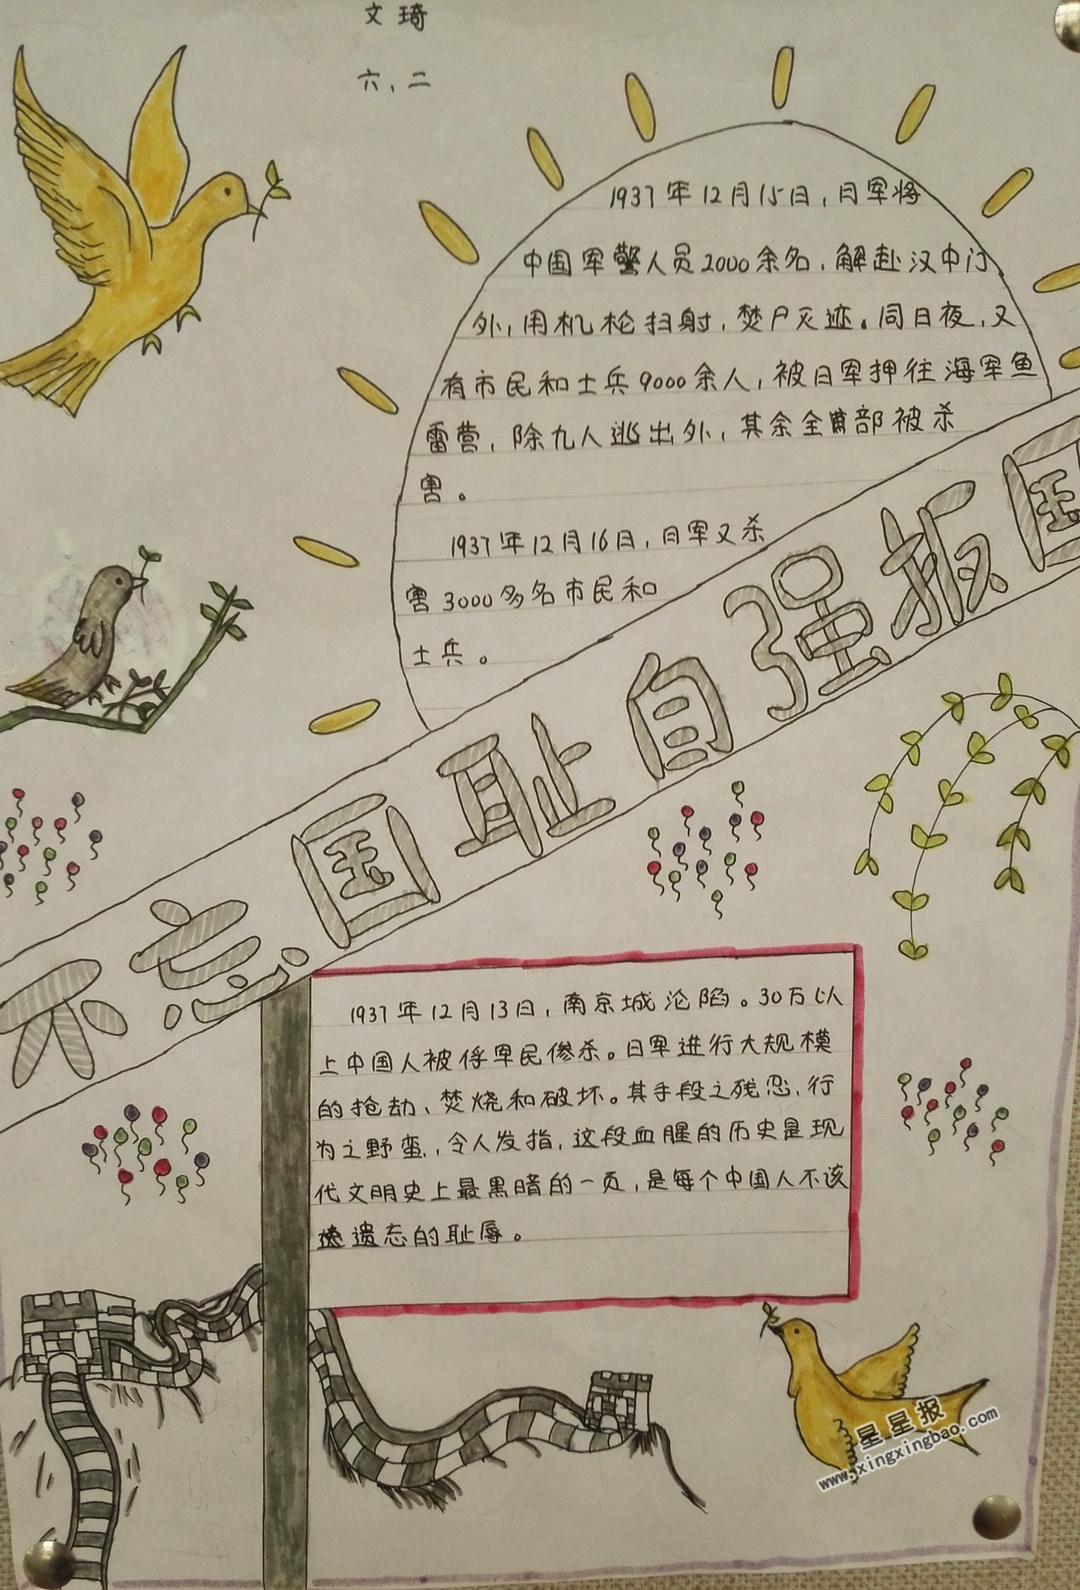 文琦
六、二
1937年12月15日,日军将
中国军警人员2000余名,解赴汉中门
外,用机枪扫射,焚尸灭迹。同日夜,又
有市民和士兵9000余人,被日军押往海军鱼
雷营,除九人逃出外,其余全部被杀
害。
1937年12月16日,日军又杀
害3000多名市民和
士兵。
不忘国耻自强报国
1937年12月13日,南京城沦陷。30万以
上中国人被俘军民惨杀。日军进行大规模
的抢劫、焚烧和破坏。其手段之残忍,行
为之野蛮,令人发指,这段血腥的历史是现
代文明史上最黑暗的一页,是每个中国人不该
遗忘的耻辱。
星星报
www.xingxingbao.com